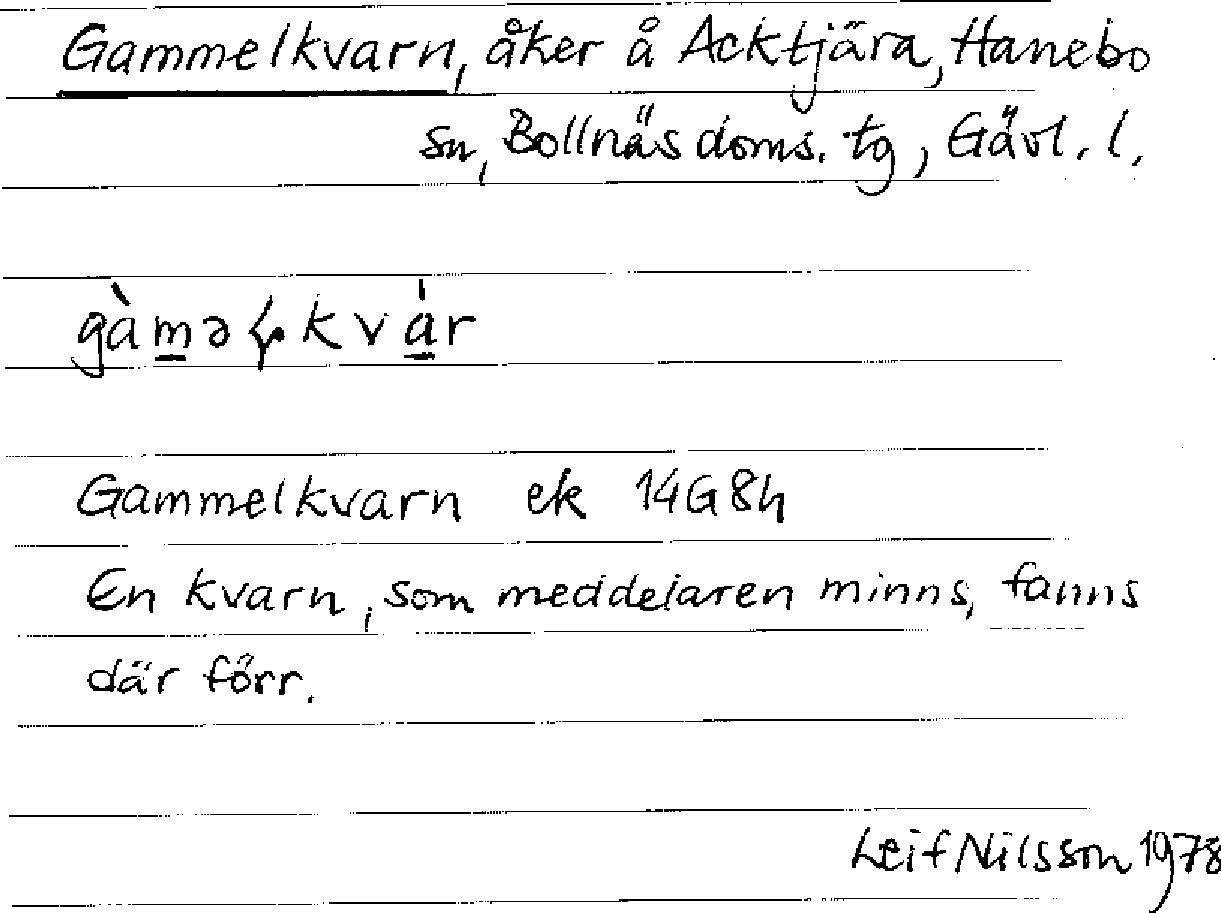 Gammelkvarn, åker å Acktjära, Hanebo
sn, Bollnäs doms. tg, Gävl. l.
gàməɫkvár
Gammelkvarn ek 14G8h
En kvarn, som meddelaren minns, fanns
där förr.
Leif Nilsson 1978